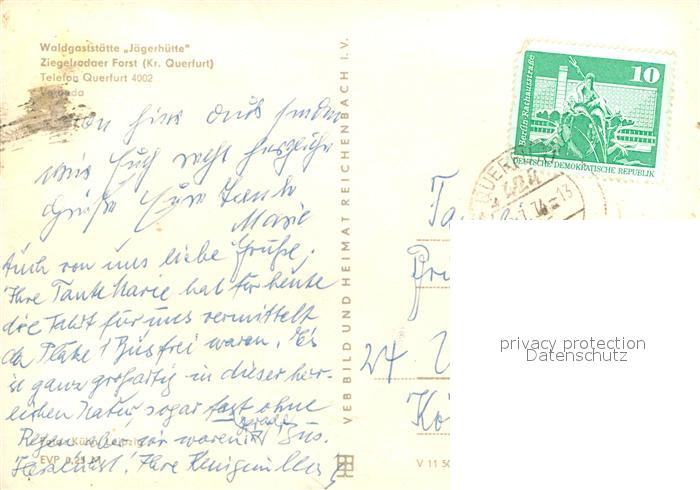 Waldgaststätte „Jägerhütte"
Ziegelrodaer Forst (Kr. Querfurt)
Telefon Querfurt 4002
Von hier aus senden
wir Euch recht herzliche
Grüße Eure Tante
Marie
Auch von uns liebe Grüße,
Ihre Tante Marie hat für heute
die Fahrt für uns vermittelt
da Plätze i/Bus frei waren. Es
ist ganz großartig in dieser herr-
lichen Natur, sogar fast ohne
Regen, wir waren gerade i/ Bus.
Herzlichst! Ihre
EVP 0,25 M
VEB BILD UND HEIMAT REICHENBACH I. V.
10
Berlin Rathausstraße
DEUTSCHE DEMOKRATISCHE REPUBLIK
QUERFURT
24
V 11 50
privacy protection
Datenschutz